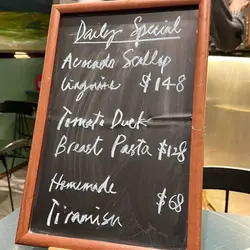 Daily Special
Avocado Scallop
Linguine $148
Tomato Duck
Breast Pasta $128
Homemade
Tiramisu $68